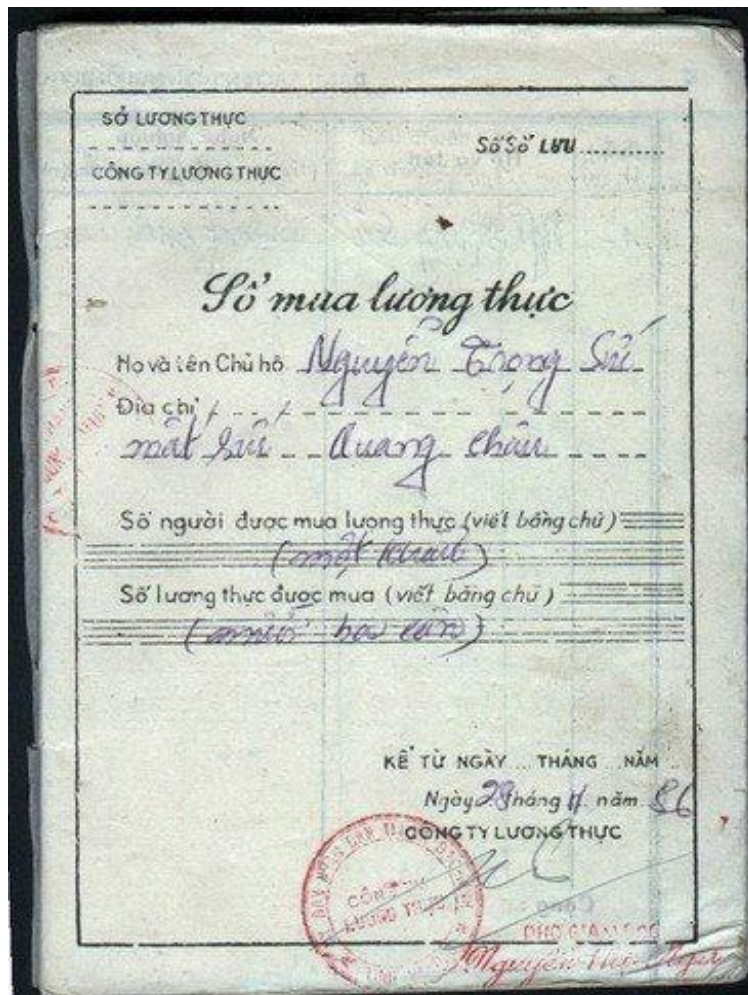 SỞ LƯƠNG THỰC
Số Sổ LƯU
CÔNG TY LƯƠNG THỰC
Sổ mua lương thực
Họ và tên Chủ hộ Nguyễn Trọng Sứ
Địa chỉ
mắt sứ Quang châu
Số người được mua lương thực (viết bằng chữ)
(một khẩu)
Số lương thực được mua (viết bằng chữ)
(mười ba cân)
KỂ TỪ NGÀY ... THÁNG ... NĂM
Ngày 28 tháng 11 năm 86
CÔNG TY LƯƠNG THỰC
CÔNG TY
LƯƠNG THỰC
PHÓ GIÁM ĐỐC
Nguyễn Nga